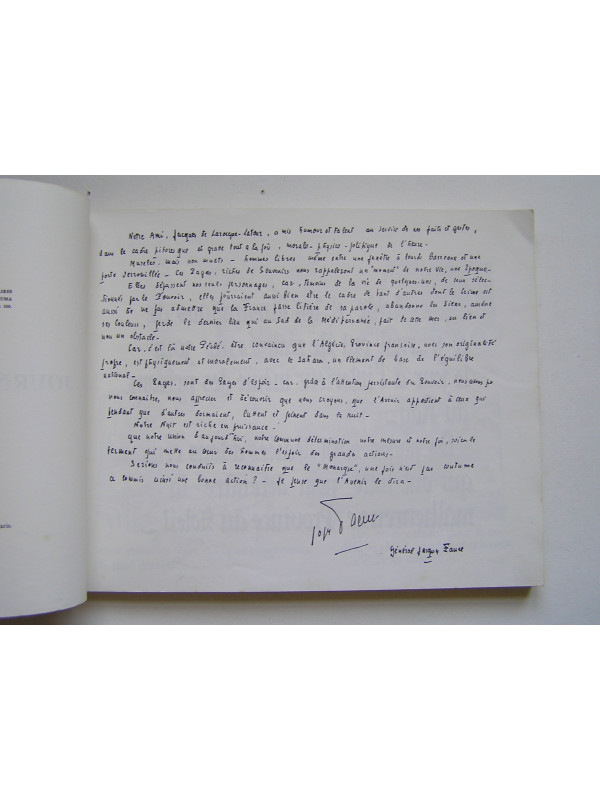 Notre Ami, Jacques de Larocque-Latour, a mis humour et talent au service de nos faits et gestes,
dans le cadre pittoresque et grave tout à la fois, morale-physico-politique de l'heure-
Muselés, mais non muets - hommes libres même entre une fenêtre à lourds Barreaux et une
porte verrouillée - Ces Pages, riches de Souvenirs nous rappelleront un "moment" de notre vie, une époque-
Elles dépassent nos seuls personnages, car, témoins de la vie de quelques-uns, de ceux sélec-
tionnés par le Pouvoir, elles pourraient aussi bien être le cadre de tant d'autres dont le crime est
aussi de ne pas admettre que la France fasse litière de sa parole, abandonne les Siens, amène
ses Couleurs, perde le dernier lien qui au Sud de la Méditerranée, fait de cette mer, un lien et
non un obstacle-
Car, c'est là notre Péché, être convaincu que l'Algérie, Province française, avec son originalité
propre, est physiquement et moralement, avec le Sahara, un élément de base de l'équilibre
national-
Ces Pages, sont des Pages d'espoir - car, grâce à l'attention persistante du Pouvoir, nous avons pu
nous connaître, nous apprécier et découvrir que nous croyons, que l'Avenir appartient à ceux qui
pendant que d'autres dorment, luttent et peinent dans la nuit-
Notre Nuit est riche en puissance-
que notre union d'aujourd'hui, notre commune détermination notre mesure et notre foi, soient le
ferment qui mette au cœur des hommes l'espoir des grandes actions-
Serions nous conduits à reconnaître que le "Monarque", une fois n'est pas coutume
a commis aussi une bonne action ? - Je pense que l'Avenir le dira-
Général Jacques Faure